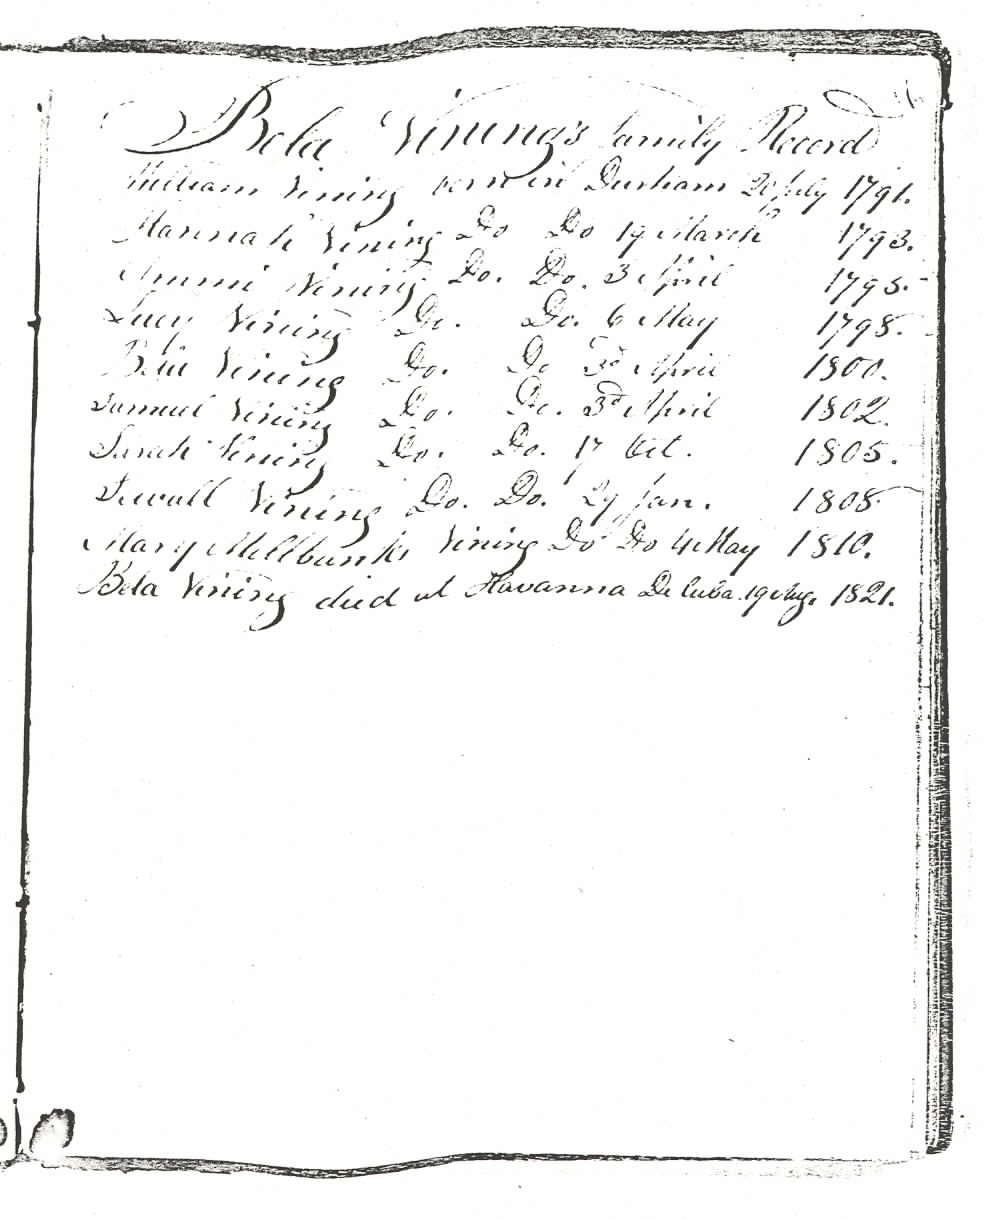 Bela Vining's family Record
William Vining born in Durham 20 July 1791.
Hannah Vining Do Do 19 March 1793.
Ammi Vining Do. Do. 3 April 1795.
Lucy Vining Do. Do. 6 May 1798.
Vining Do. Do 3d April 1800.
Samuel Vining Do. Do. 3d April 1802.
Sarah Vining Do. Do. 17 Oct. 1805.
Sewall Vining Do. Do. 29 Jan. 1808
Mary Millbanks Vining Do Do 4 May 1810.
Bela Vining died at Havanna De Cuba 19 Aug. 1821.